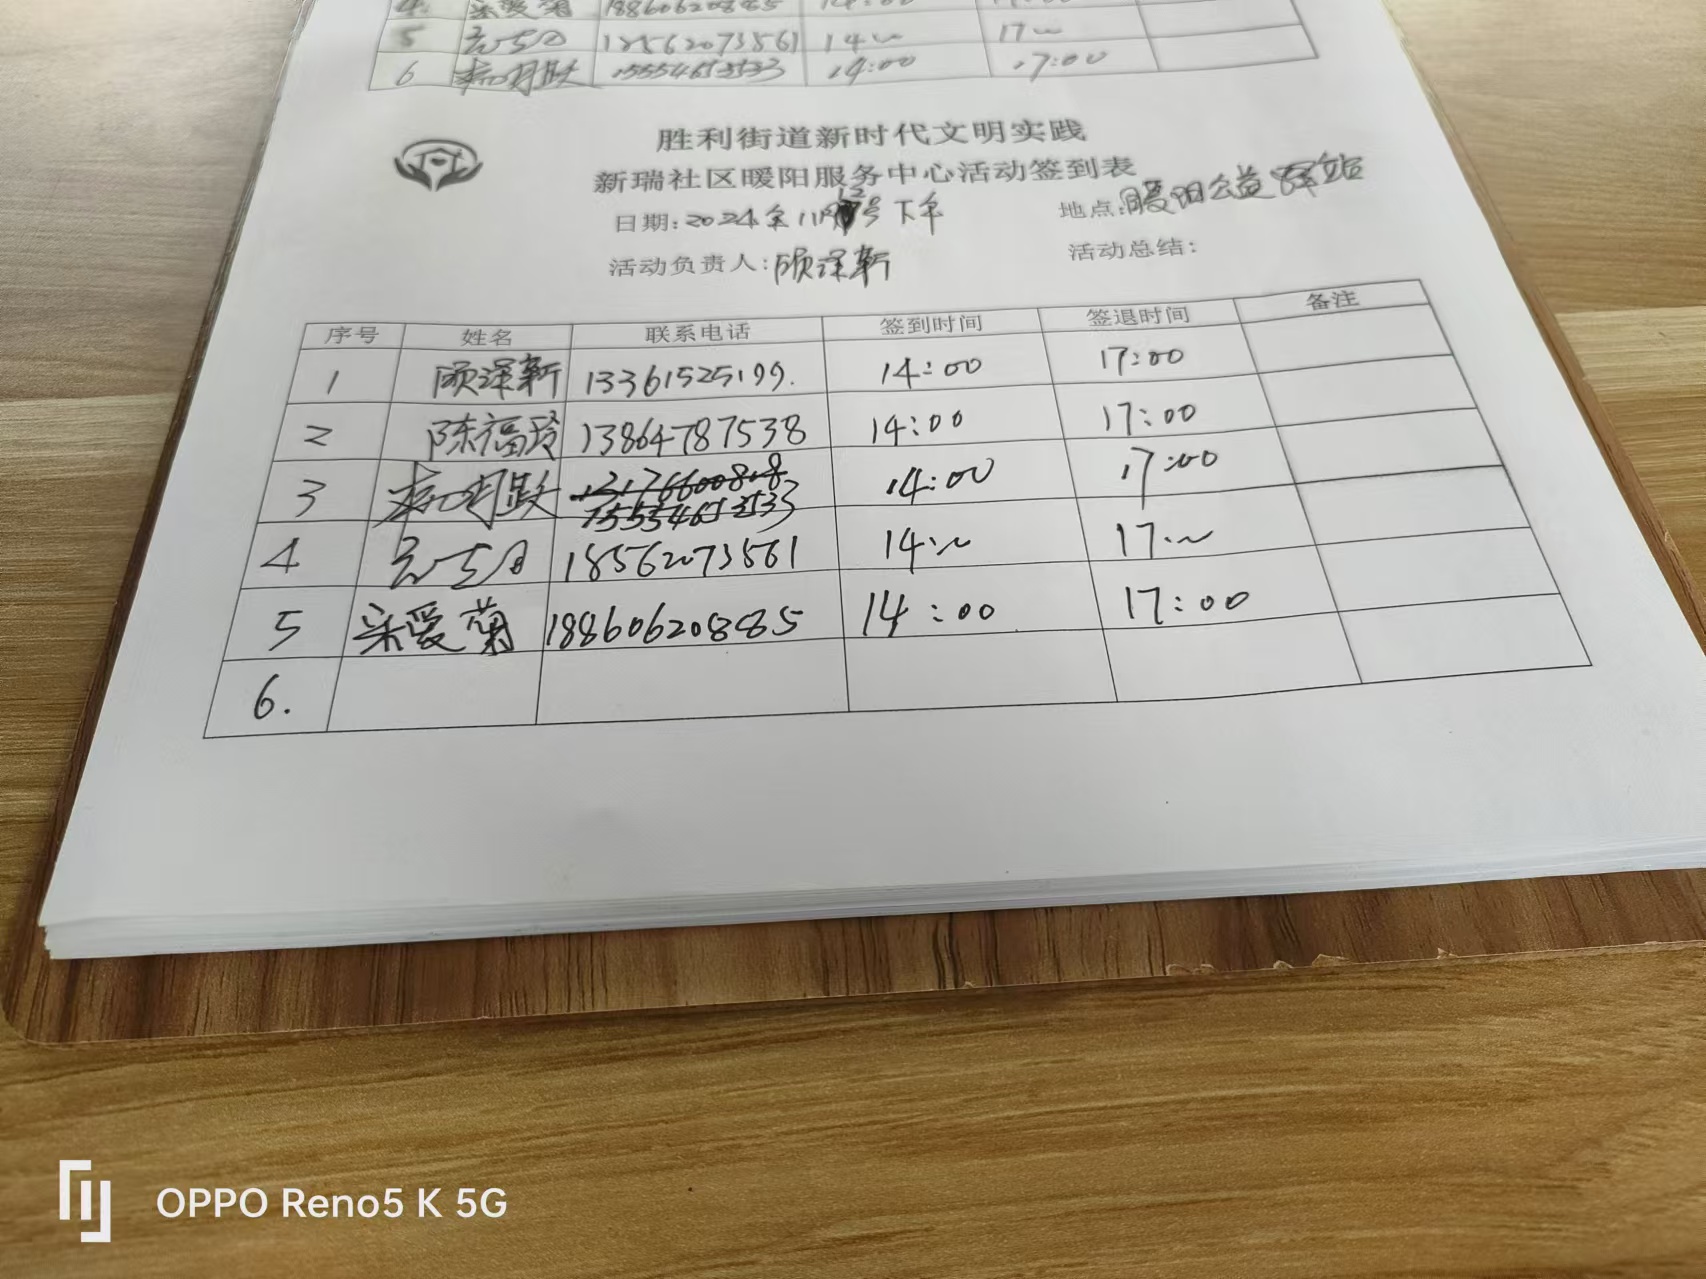 4. 宋爱菊 18860620885 14:00
5 18562073561 14:00 17:00
6 15554653533 14:00 17:00
胜利街道新时代文明实践
新瑞社区暖阳服务中心活动签到表
日期:2024年11月12号下午 地点:暖阳公益驿站
活动负责人:顾泽新 活动总结:
序号 姓名 联系电话 签到时间 签退时间 备注
1 顾泽新 13361525199. 14:00 17:00
2 陈福玲 13864787538 14:00 17:00
3 13176600818 14:00 17:00
15554653533
4 18562073561 14:00 17:00
5 宋爱菊 18860620885 14:00 17:00
6.
OPPO Reno5 K 5G